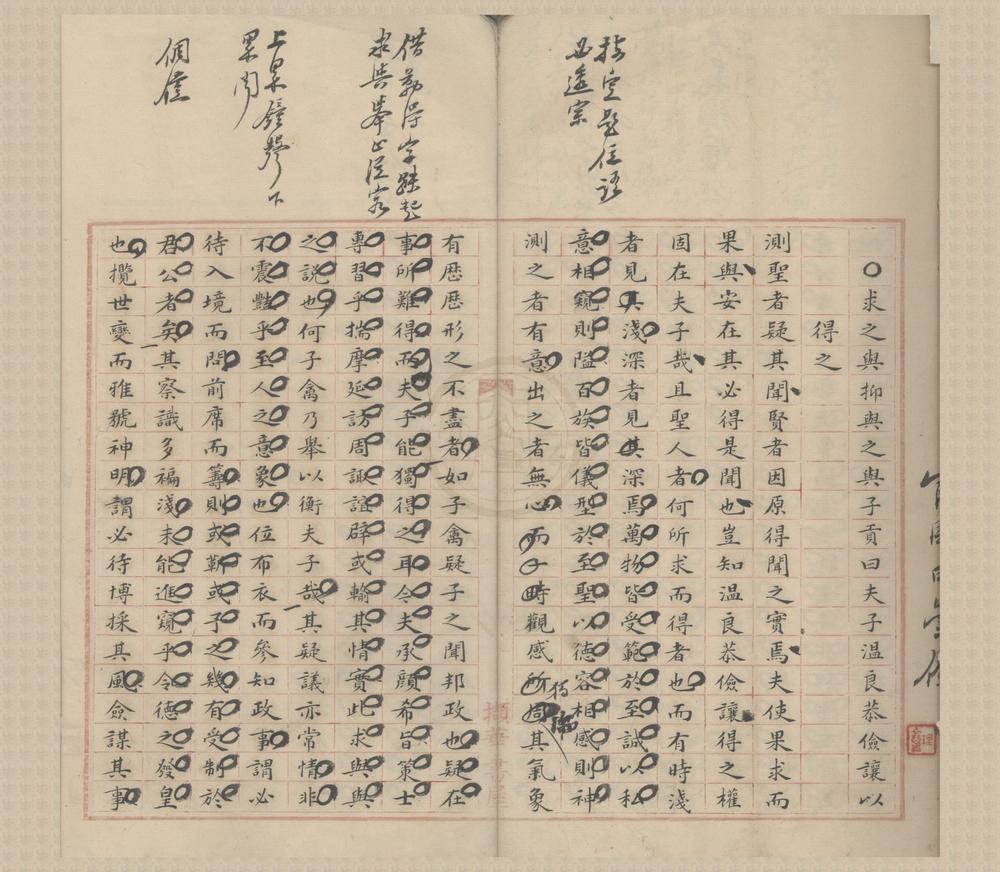 指定是信語
四遠宗
○求之與抑與之與子貢曰夫子溫良恭儉讓以
得之
測聖者疑其聞賢者因原得聞之實焉夫使果求而
果與安在其必得是聞也豈知溫良恭儉讓得之權
固在夫子哉且聖人者何所求而得者也而有時淺
者見其淺深者見其深焉萬物皆受範於至誠以私
意相窺則隘百族皆儀型於至聖以德容相感則神
測之者有意出之者無心而
時觀感所
其氣象
求與舉止從容
上罘鐘聲下
罘閉
有歷歷形之不盡者如子禽疑子之聞邦政也疑在
事所難得而夫子能獨得之耳今夫承顏希旨策士
專習乎揣摩延訪周諏諠辟或輸其情實此求與與
之說也何子禽乃舉以衡夫子哉其疑議亦常情非
不震豔乎至人之意象也位布衣而參知政事謂必
待入境而問前席而籌則或靳或予之幾有受制於
君公者矣其察識多褊淺未能進窺乎令德之發皇
也攬世變而雅號神明謂必待博採其風僉謀其事